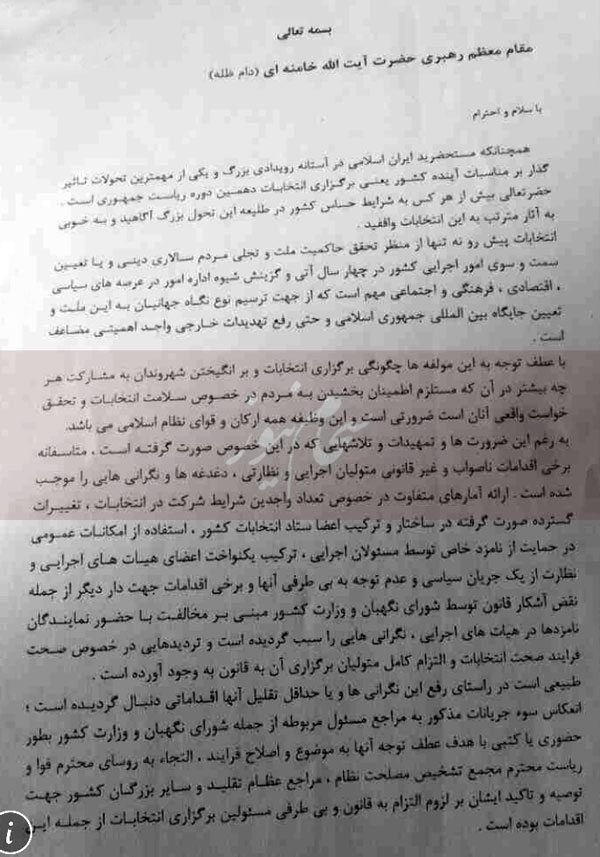 بسمه تعالی
مقام معظم رهبری حضرت آیت الله خامنه ای (دام ظله)
با سلام و احترام
همچنانکه مستحضرید ایران اسلامی در آستانه رویدادی بزرگ و یکی از مهمترین تحولات تاثیر
گذار بر مناسبات آینده کشور یعنی برگزاری انتخابات دهمین دوره ریاست جمهوری است .
حضرتعالی بیش از هر کس به شرایط حساس کشور در طلیعه این تحول بزرگ آگاهید و به خوبی
به آثار مترتب به این انتخابات واقفید .
انتخابات پیش رو نه تنها از منظر تحقق حاکمیت ملت و تجلی مردم سالاری دینی و یا تعیین
سمت و سوی امور اجرایی کشور در چهار سال آتی و گزینش شیوه اداره امور در عرصه های سیاسی
، اقتصادی ، فرهنگی و اجتماعی مهم است که از جهت ترسیم نوع نگاه جهانیان به این ملت و
تعیین جایگاه بین المللی جمهوری اسلامی و حتی رفع تهدیدات خارجی واجد اهمیتی مضاعف
است .
با عطف توجه به این مولفه ها چگونگی برگزاری انتخابات و بر انگیختن شهروندان به مشارکت هر
چه بیشتر در آن که مستلزم اطمینان بخشیدن به مردم در خصوص سلامت انتخابات و تحقق
خواست واقعی آنان است ضرورتی است و این وظیفه همه ارکان و قوای نظام اسلامی می باشد.
به رغم این ضرورت ها و تمهیدات و تلاشهایی که در این خصوص صورت گرفته است ، متاسفانه
برخی اقدامات ناصواب و غیر قانونی متولیان اجرایی و نظارتی ، دغدغه ها و نگرانی هایی را موجب
شده است . ارائه آمارهای متفاوت در خصوص تعداد واجدین شرایط شرکت در انتخابات ، تغییرات
گسترده صورت گرفته در ساختار و ترکیب اعضا ستاد انتخابات کشور ، استفاده از امکانات عمومی
در حمایت از نامزد خاص توسط مسئولان اجرایی ، ترکیب یکنواخت اعضای هیات های اجرایی و
نظارت از یک جریان سیاسی و عدم توجه به بی طرفی آنها و برخی اقدامات جهت دار دیگر از جمله
نقض آشکار قانون توسط شورای نگهبان و وزارت کشور مبنی بر مخالفت با حضور نمایندگان
نامزدها در هیات های اجرایی ، نگرانی هایی را سبب گردیده است و تردیدهایی در خصوص صحت
فرایند صحت انتخابات و التزام کامل متولیان برگزاری آن به قانون به وجود آورده است .
طبیعی است در راستای رفع این نگرانی ها و یا حداقل تقلیل آنها اقداماتی دنبال گردیده است ؛
انعکاس سوء جریانات مذکور به مراجع مسئول مربوطه از جمله شورای نگهبان و وزارت کشور بطور
حضوری یا کتبی با هدف عطف توجه آنها به موضوع و اصلاح فرایند ، التجاء به روسای محترم قوا و
ریاست محترم مجمع تشخیص مصلحت نظام ، مراجع عظام تقلید و سایر بزرگان کشور جهت
توصیه و تاکید ایشان بر لزوم التزام به قانون و بی طرفی مسئولین برگزاری انتخابات از جمله این
اقدامات بوده است .